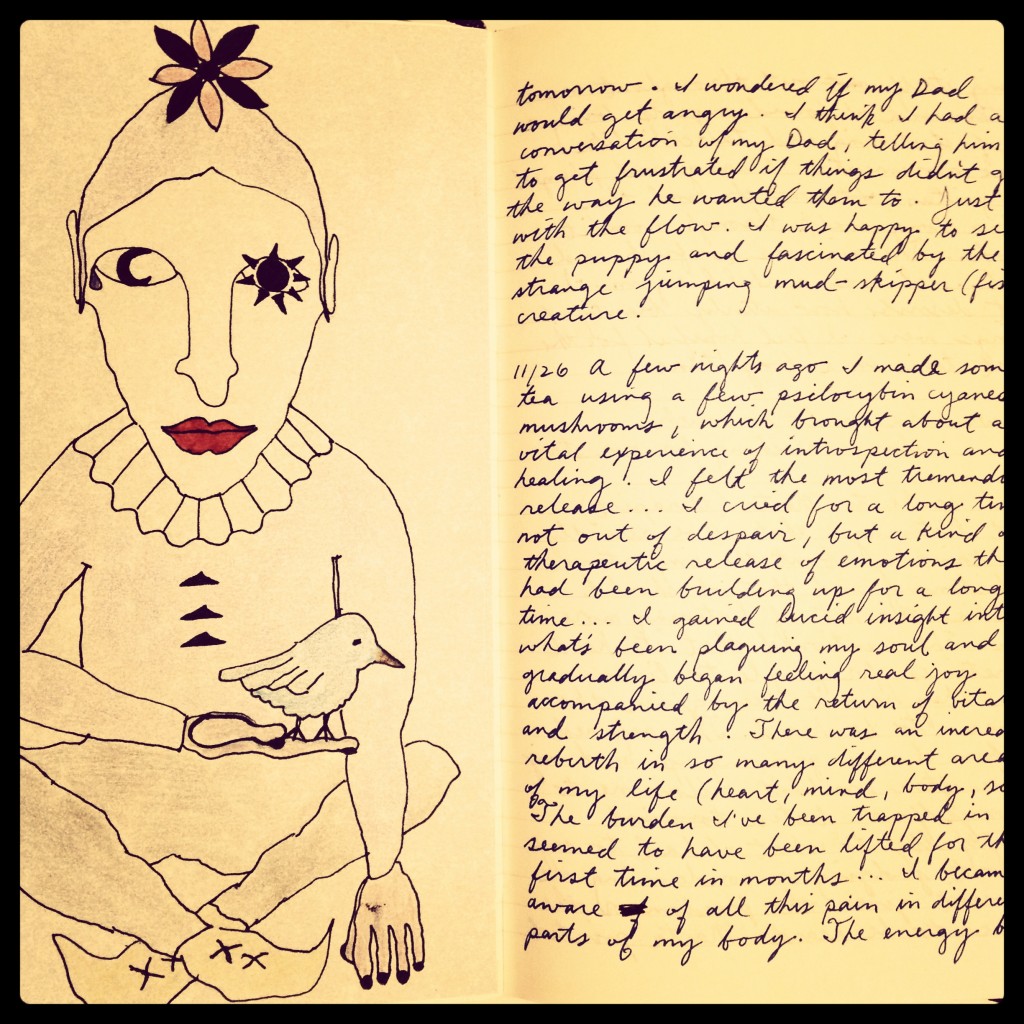 tomorrow. I wondered if my Dad
would get angry. I think I had a
conversation w/ my Dad, telling him
to get frustrated if things didn't g
the way he wanted them to. Just
with the flow. I was happy to se
the puppy and fascinated by the
strange jumping mud-skipper (fis
creature.
11/26 A few nights ago I made som
tea using a few psilocybin cyanes
mushrooms, which brought about a
vital experience of introspection and
healing. I felt the most tremend
release... I cried for a long tim
not out of despair, but a kind o
therapeutic release of emotions th
had been building up for a long
time... I gained lucid insight int
what's been plaguing my soul and
gradually began feeling real joy
accompanied by the return of vita
and strength. There was an increa
rebirth in so many different area
of my life (heart, mind, body, so
The burden I've been trapped in
seemed to have been lifted for th
first time in months... I becam
aware of all this pain in differe
parts of my body. The energy b